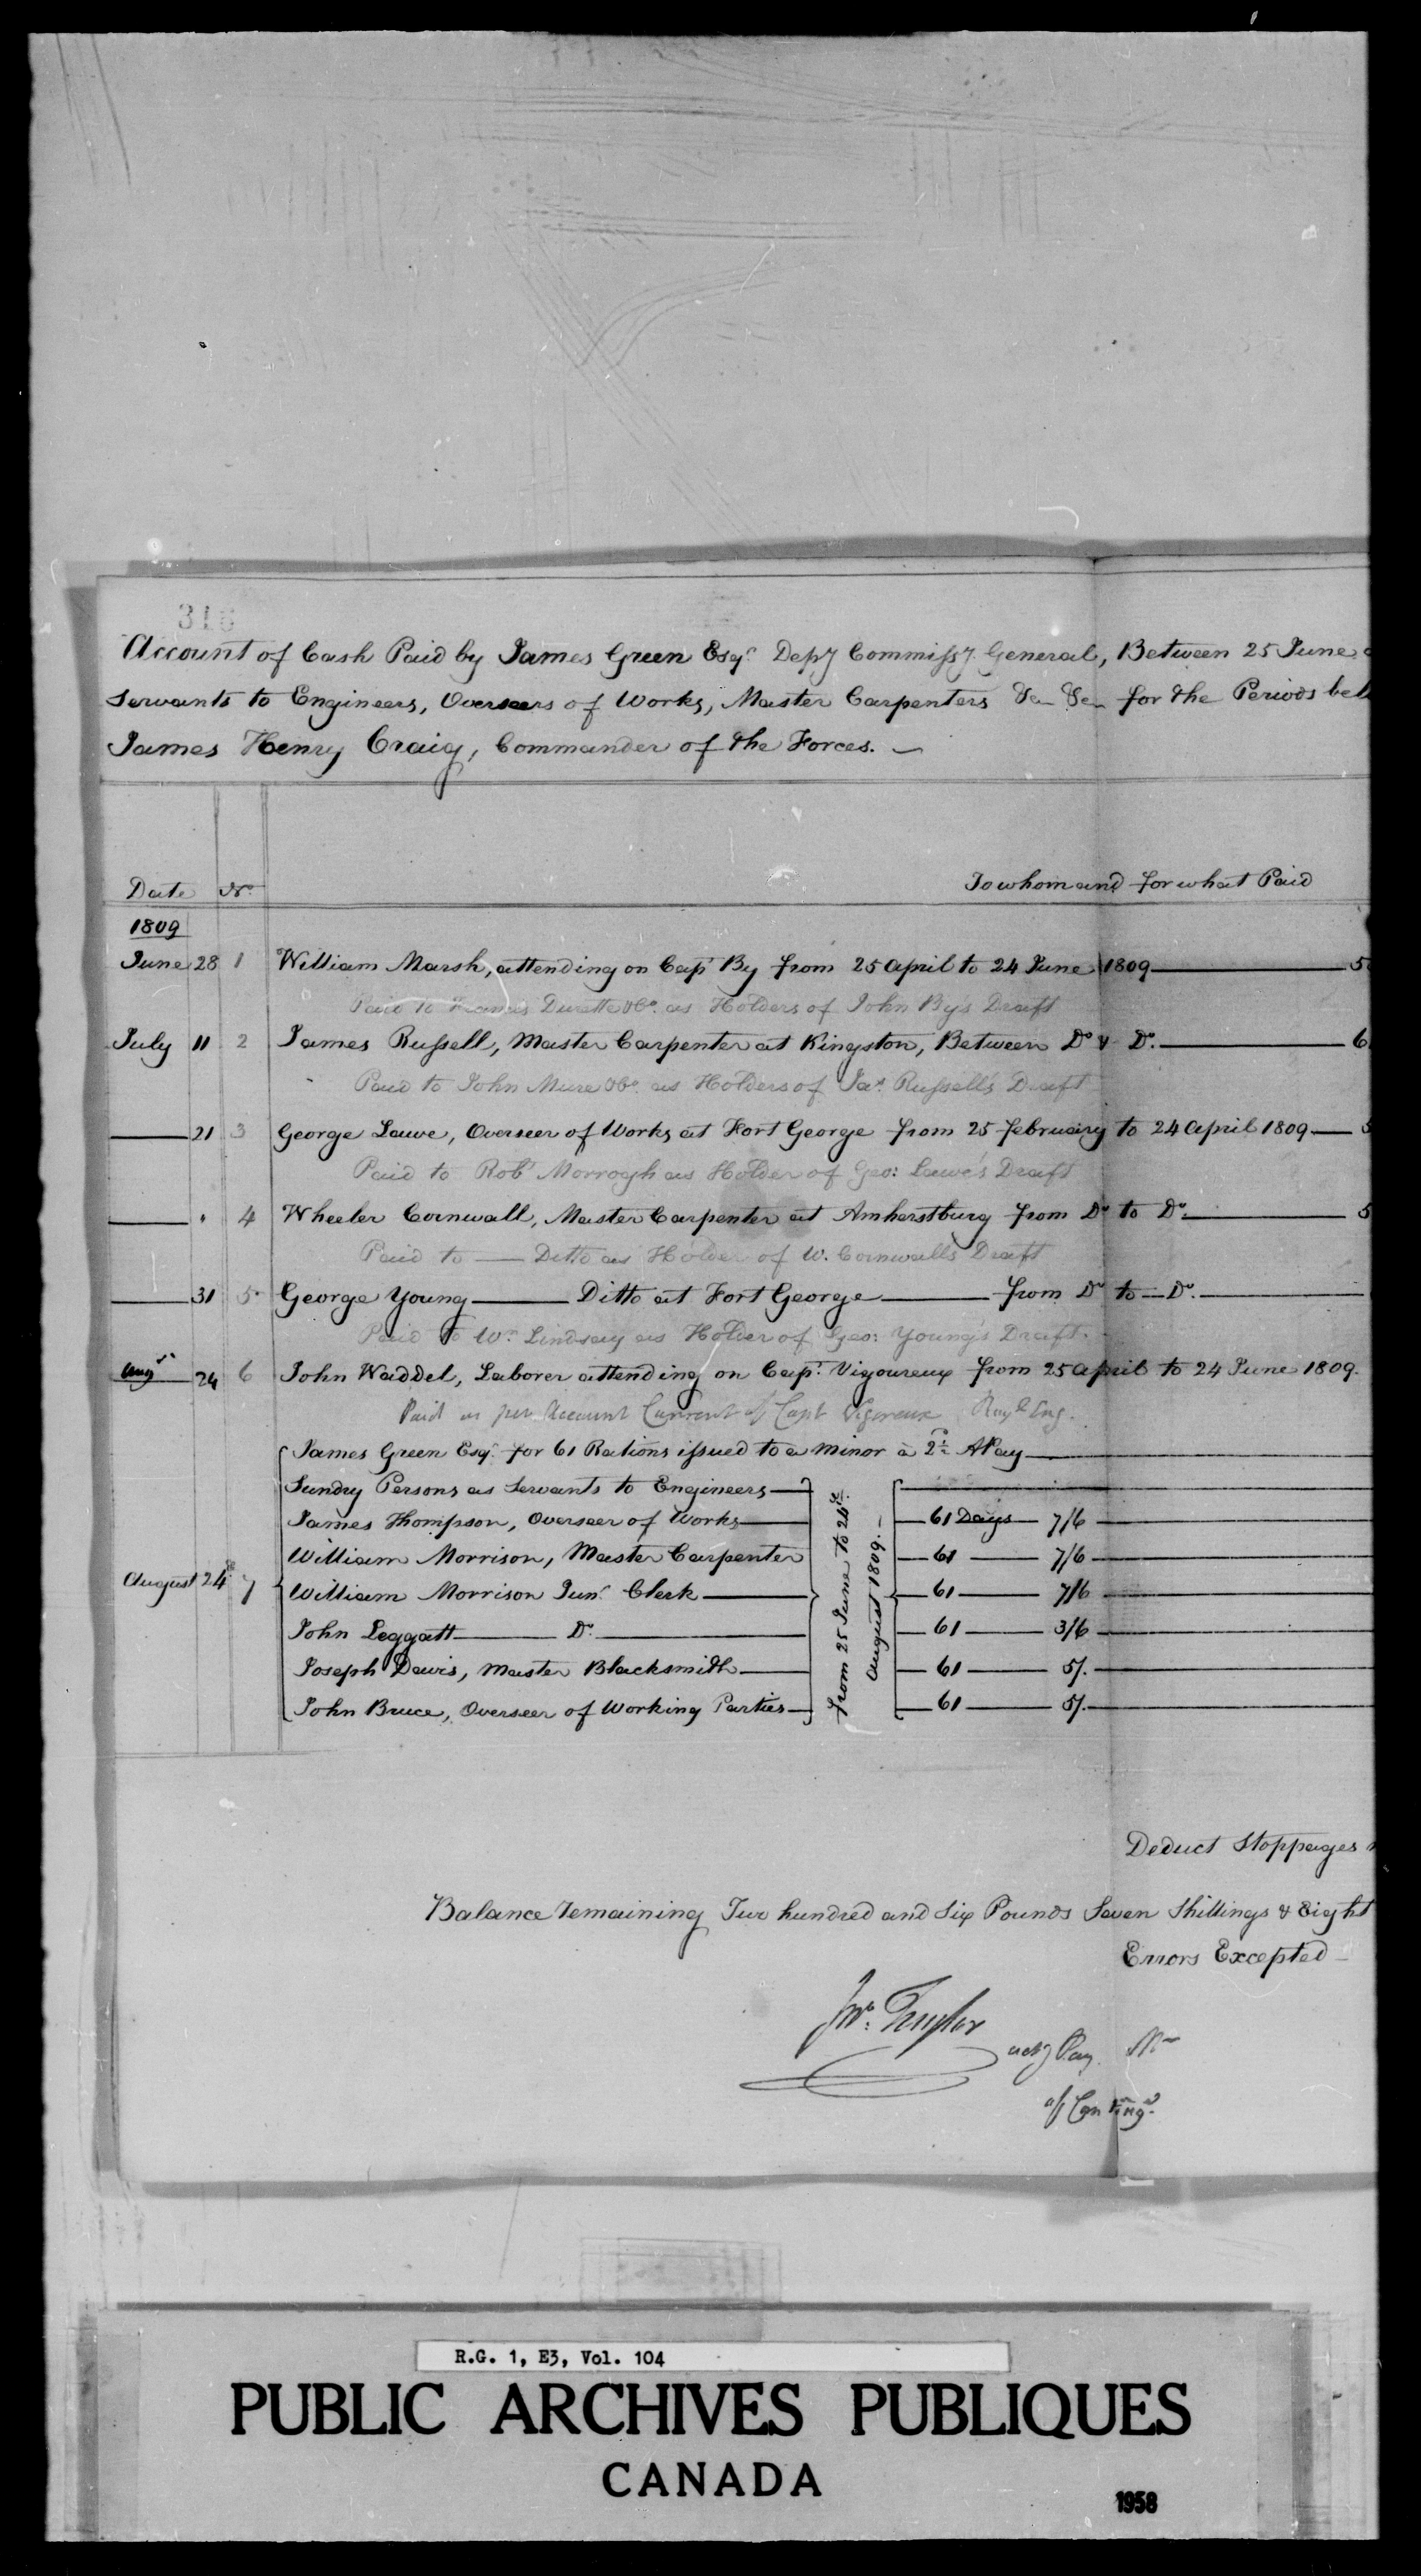 316
Account of Cash Paid by James Green Esqr. Depy Commissy. General, Between 25 June
Servants to Engineers, Overseers of Works, Master Carpenters &c &c for the Periods
James Henry Craig, Commander of the Forces. —
Date No. To whom and for what Paid
1809
June 28 1 William Marsh, attending on Capt By from 25 April to 24 June 1809 — 5
Paid to Francis Durette &Co. as Holders of John By's Draft
July 11 2 James Russell, Master Carpenter at Kingston, Between Do & Do. — 6
Paid to John Mure &Co. as Holders of Jas. Russell's Draft
— 21 3 George Lawe, Overseer of Works at Fort George from 25 February to 24 April 1809 —
Paid to Robt Morrogh as Holder of Geo: Lawe's Draft
— " 4 Wheeler Cornwall, Master Carpenter at Amherstburg from Do to Do. — 5
Paid to — Ditto as Holder of W. Cornwall's Draft
— 31 5 George Young — Ditto at Fort George — from Do to — Do. —
Paid to Wm Lindsay as Holder of Geo: Young's Draft.
Augt 24 6 John Waddel, Laborer attending on Capt. Vigoureux from 25 April to 24 June 1809.
Paid as per Account Current of Capt Vigoreux Royl Eng.
James Green Esqr. for 61 Rations issued to a minor a 2 —
Sundry Persons as Servants to Engineers —
James Thompson, Overseer of Works — 61 Days — 7/6 —
William Morrison, Master Carpenter — 61 — 7/6 —
August 24th 7 William Morrison Junr Clerk — 61 — 7/6 —
John Leggatt — Do. — 61 — 3/6 —
Joseph Davis, Master Blacksmith — 61 — 5/. —
John Bruce, Overseer of Working Parties — 61 — 5/. —
from 25 June to 24th.
August 1809. —
Deduct Stoppages
Balance remaining Two hundred and Six Pounds Seven Shillings & Eight
Errors Excepted —
Jno. Taylor
actg Pay Mr
of Conting.
R.G. 1, E3, Vol. 104
PUBLIC ARCHIVES PUBLIQUES
CANADA
1958